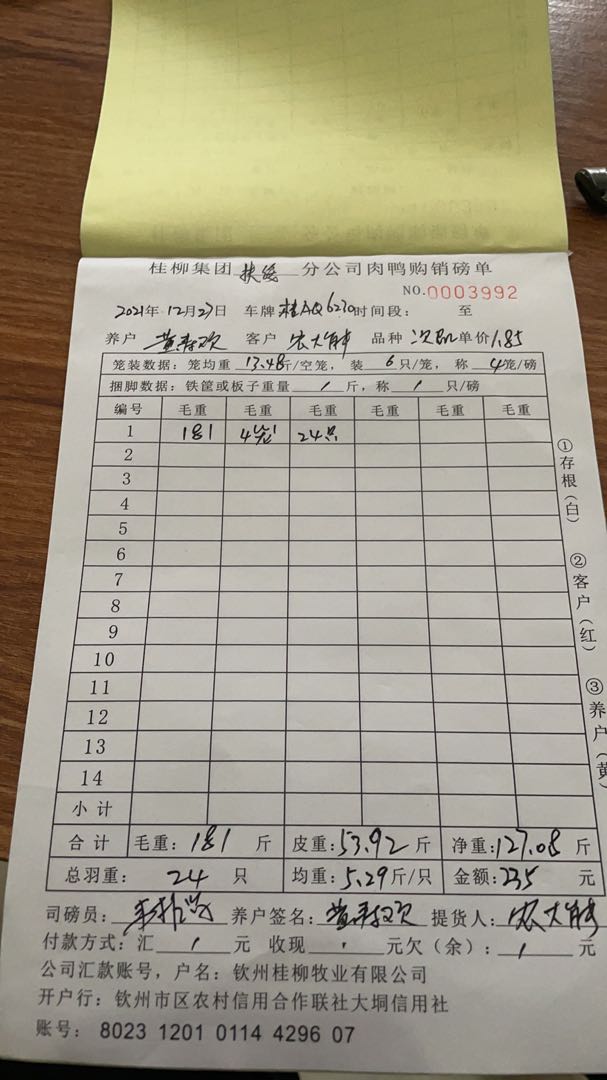 桂柳集团扶绥分公司肉鸭购销磅单
NO.0003992
2021年12月27日 车牌桂AQ6230时间段: 至
养户 客户农大 品种次肥单价1.85
笼装数据:笼均重13.48斤/空笼,装6只/笼,称4笼/磅
捆脚数据:铁筐或板子重量/斤,称/只/磅
编号 毛重 毛重 毛重 毛重 毛重 毛重
1 181 4笼 24只
2
3
4
5
6
7
8
9
10
11
12
13
14
小计
合计 毛重:181斤 皮重:53.92斤 净重:127.08斤
总羽重:24只 均重:5.29斤/只 金额:235元
司磅员: 养户签名: 提货人:农大
付款方式:汇/元 收现/元欠(余):/元
公司汇款账号,户名:钦州桂柳牧业有限公司
开户行:钦州市区农村信用合作联社大垌信用社
账号:8023 1201 0114 4296 07
①存根(白)
②客户(红)
③养户(黄)